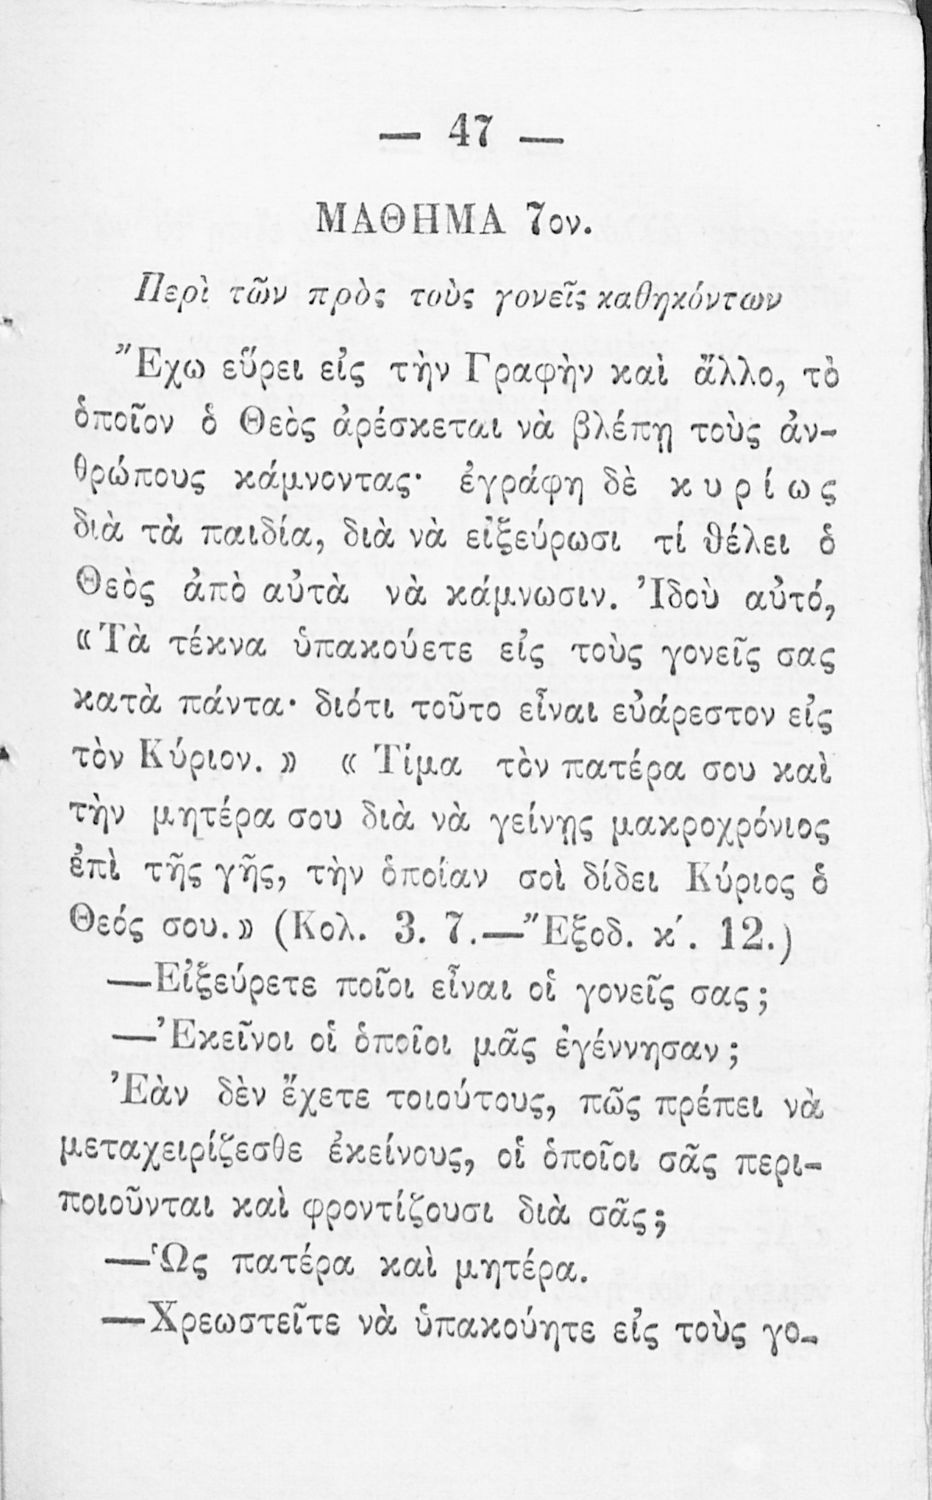 — 47 —
ΜΑΘΗΜΑ 7ον.
Περὶ τῶν πρὸς τοὺς γονεῖς καθηκόντων
Ἔχω εὕρει εἰς τὴν Γραφὴν καὶ ἄλλο, τὸ
ὁποῖον ὁ Θεὸς ἀρέσκεται νὰ βλέπῃ τοὺς ἀν-
θρώπους κάμνοντας· ἐγράφη δὲ κυρίως
διὰ τὰ παιδία, διὰ νὰ εἰξεύρωσι τί θέλει ὁ
Θεὸς ἀπὸ αὐτὰ νὰ κάμνωσιν. Ἰδοὺ αὐτό,
«Τὰ τέκνα ὑπακούετε εἰς τοὺς γονεῖς σας
κατὰ πάντα· διότι τοῦτο εἶναι εὐάρεστον εἰς
τὸν Κύριον.» «Τίμα τὸν πατέρα σου καὶ
τὴν μητέρα σου διὰ νὰ γείνῃς μακροχρόνιος
ἐπὶ τῆς γῆς, τὴν ὁποίαν σοὶ δίδει Κύριος ὁ
Θεός σου.» (Κολ. 3. 7.—Ἔξοδ. κ΄. 12.)
—Εἰξεύρετε ποῖοι εἶναι οἱ γονεῖς σας;
—Ἐκεῖνοι οἱ ὁποῖοι μᾶς ἐγέννησαν;
Ἐὰν δὲν ἔχετε τοιούτους, πῶς πρέπει νὰ
μεταχειρίζεσθε ἐκείνους, οἱ ὁποῖοι σᾶς περι-
ποιοῦνται καὶ φροντίζουσι διὰ σᾶς;
—Ὡς πατέρα καὶ μητέρα.
—Χρεωστεῖτε νὰ ὑπακούητε εἰς τοὺς γο-